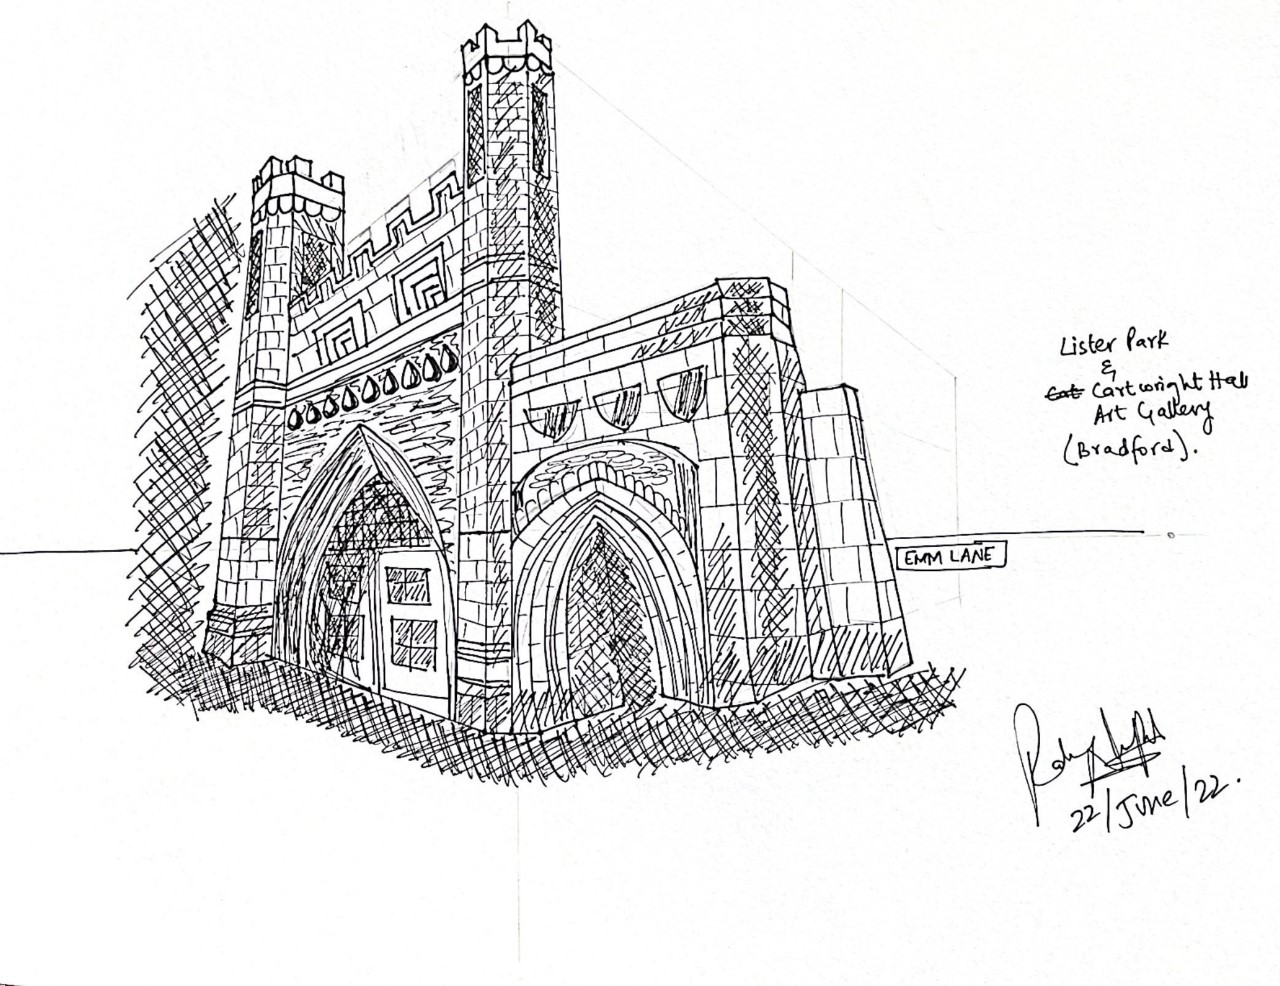 Lister Park
&
Cat Cartwright Hall
Art Gallery
(Bradford).
EMM LANE
22/June/22.